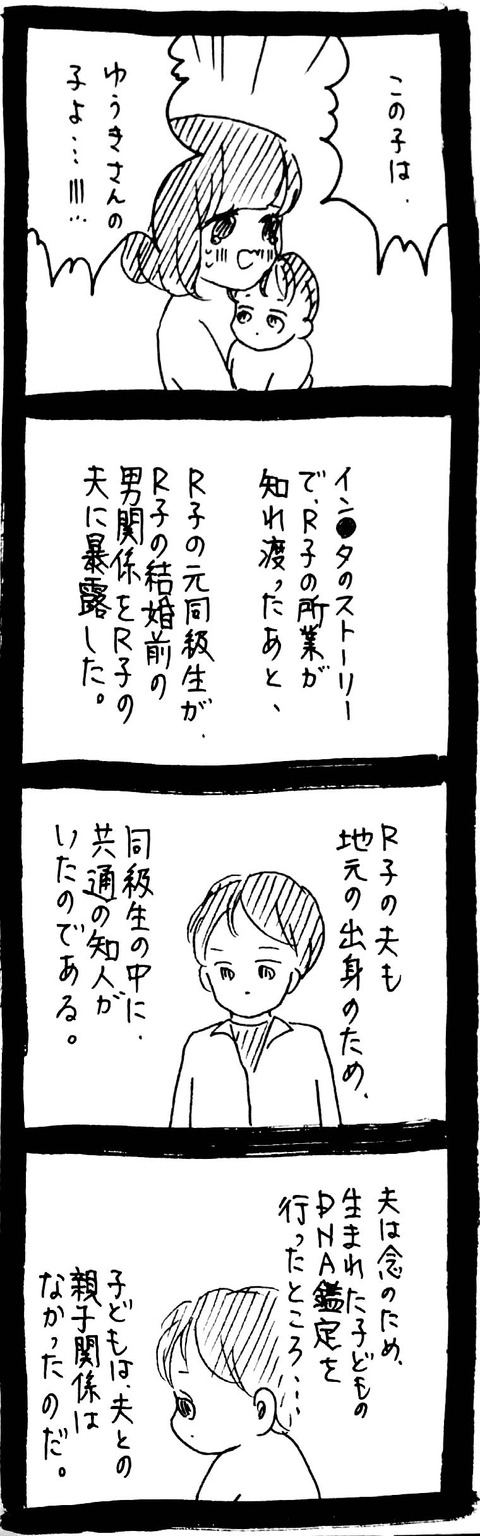 この子は、
ゆうきさんの
子よ…!!!…
イン●タのストーリー
で、R子の所業が
知れ渡ったあと、
R子の元同級生が、
R子の結婚前の
男関係をR子の
夫に暴露した。
R子の夫も
地元の出身のため、
同級生の中に、
共通の知人が
いたのである。
夫は念のため、
生まれた子どもの
DNA鑑定を
行ったところ…
子どもは、夫との
親子関係は
なかったのだ。